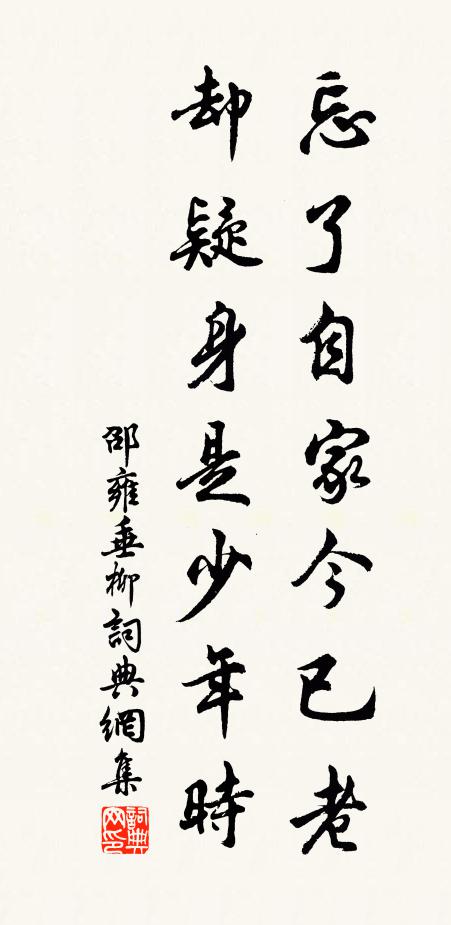 忘了自家今已老
却疑身是少年時
邵雍垂柳詞典網集
詞典网印